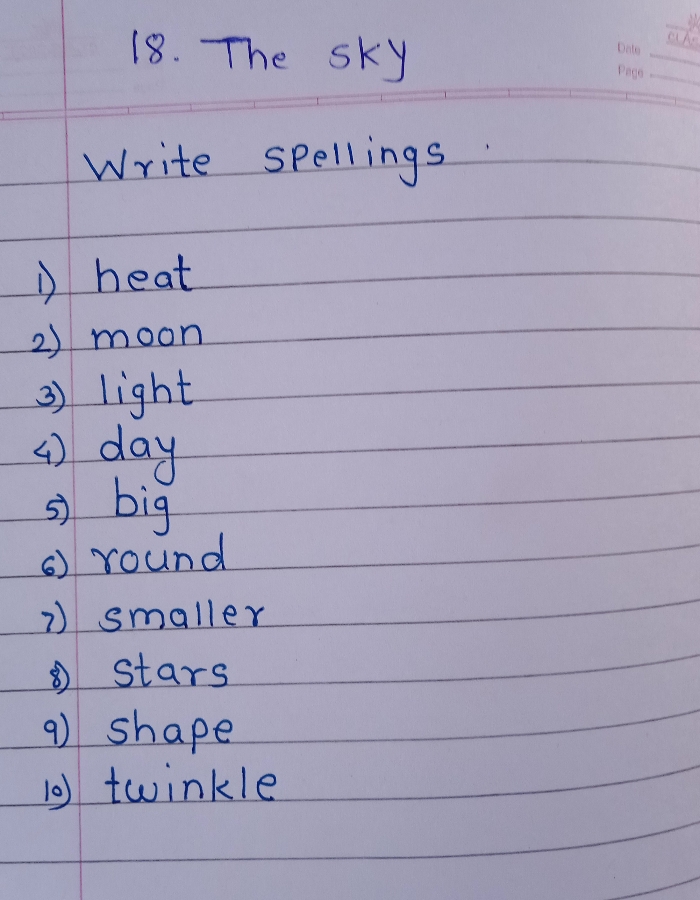 18. The sky
Date
Page
Write spellings.
1) heat
2) moon
3) light
4) day
5) big
6) round
7) smaller
8) stars
9) shape
10) twinkle